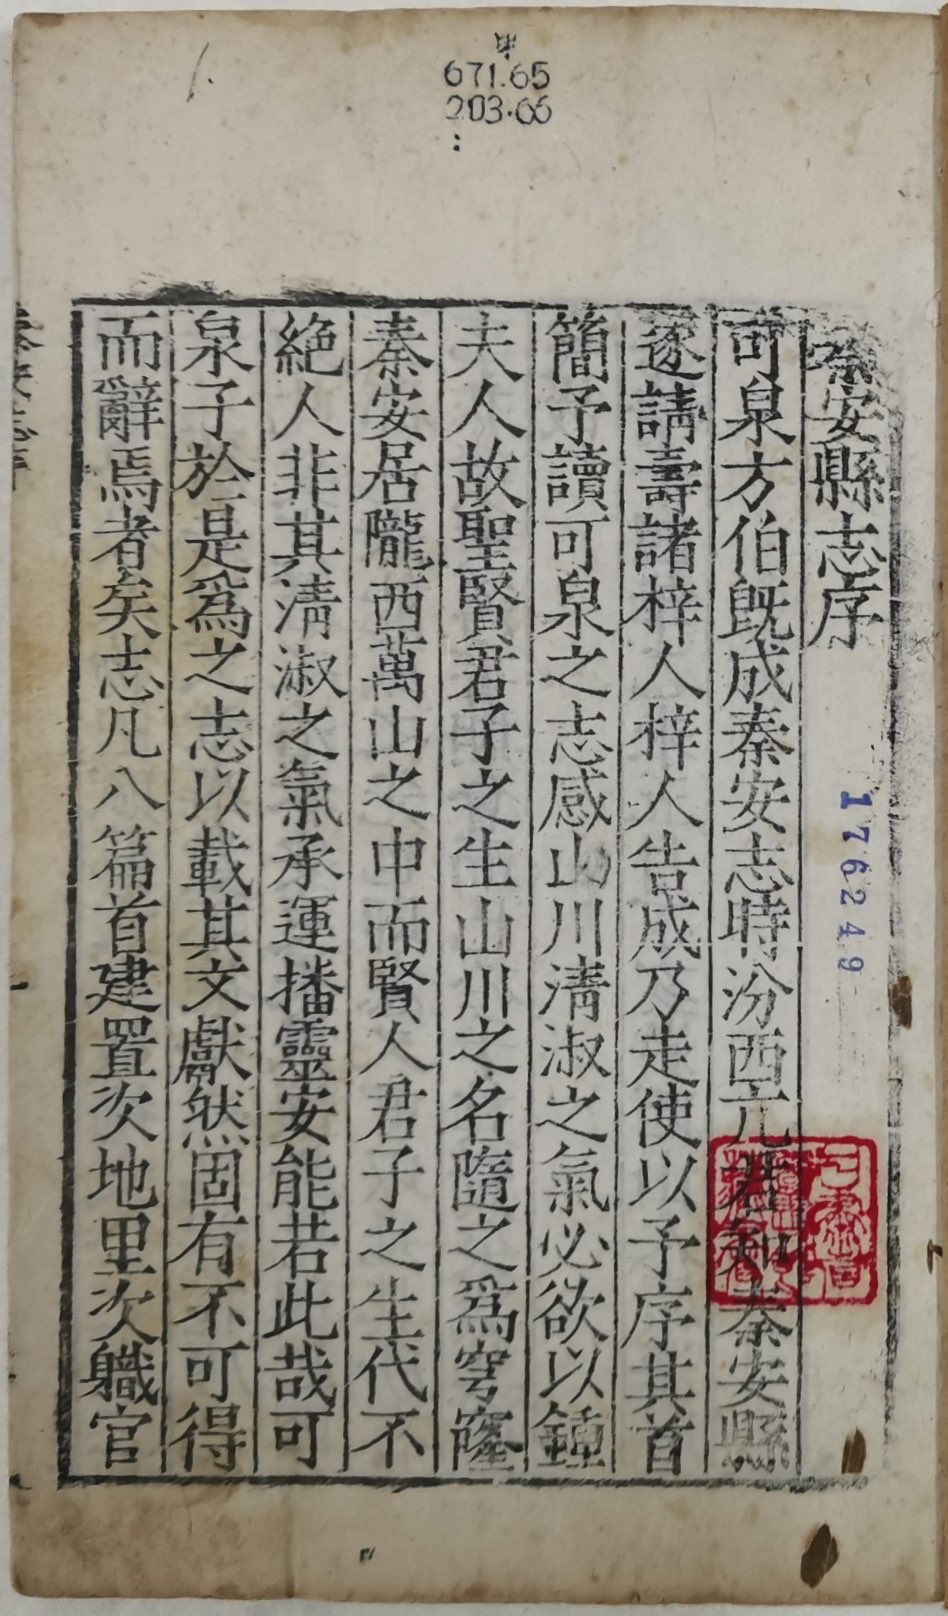 671.65
203.66
秦安縣志序
可泉方伯旣成秦安志時汾西亢君知秦安縣
遂請壽諸梓人梓人告成乃走使以予序其首
簡予讀可泉之志感山川淸淑之氣必欲以鍾
夫人故聖賢君子之生山川之名隨之爲穹窿
秦安居隴西萬山之中而賢人君子之生代不
絶人非其淸淑之氣承運播靈安能若此哉可
泉子於是爲之志以載其文獻然固有不可得
而辭焉者矣志凡八篇首建置次地里次職官
176249